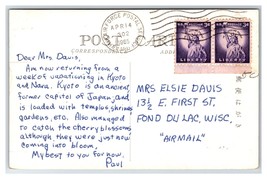 POST
CORRESPONDENCE
AIR FORCE POSTAL
APR 14
1965
3¢ 3¢
LIBERTY LIBERTY
Dear Mrs. Davis,
Am now returning from a
week of vacationing in Kyoto
and Nara. Kyoto is an ancient
former capitol of Japan, and
is loaded with temples, shrines
gardens, etc. Also managed
to catch the cherry blossoms
although they were just now
coming into bloom.
My best to you for now,
Paul
MRS ELSIE DAVIS
13½ E. FIRST ST.
FOND DU LAC, WISC,
"AIRMAIL"